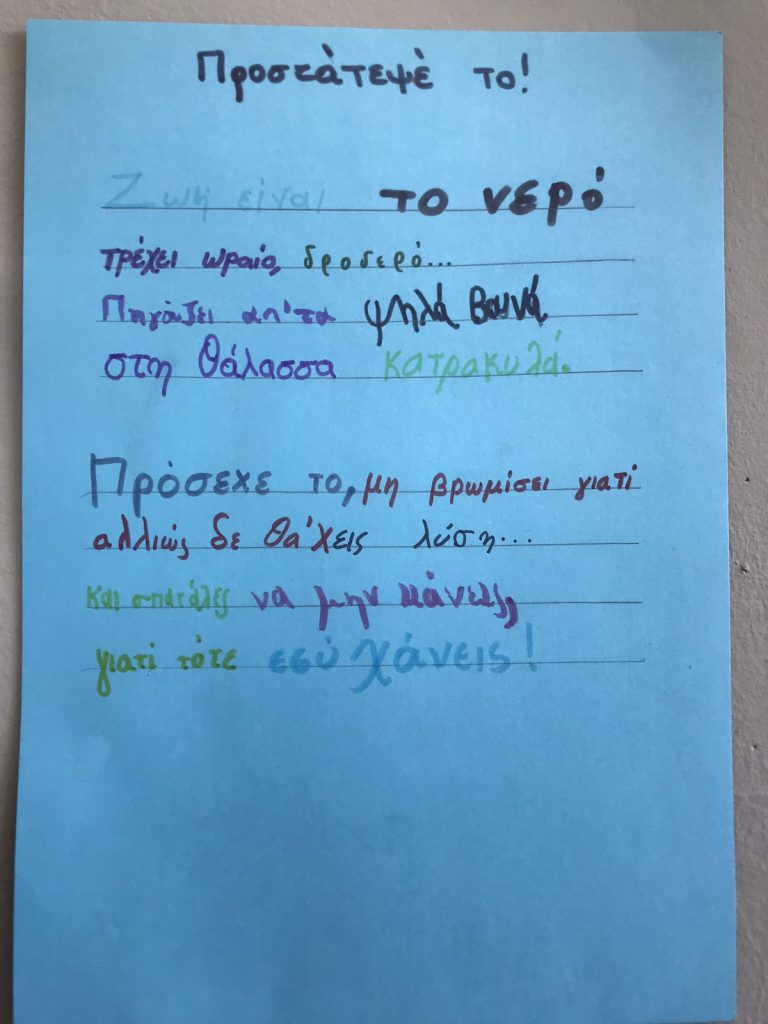 Προστάτεψέ το!
Ζωή είναι το νερό
τρέχει ωραίο, δροσερό...
Πηγάζει απ'τα ψηλά βουνά
στη θάλασσα κατρακυλά.
Πρόσεχε το, μη βρωμίσει γιατί
αλλιώς δε θα'χεις λύση...
και σπατάλες να μην κάνεις,
γιατί τότε εσύ χάνεις!